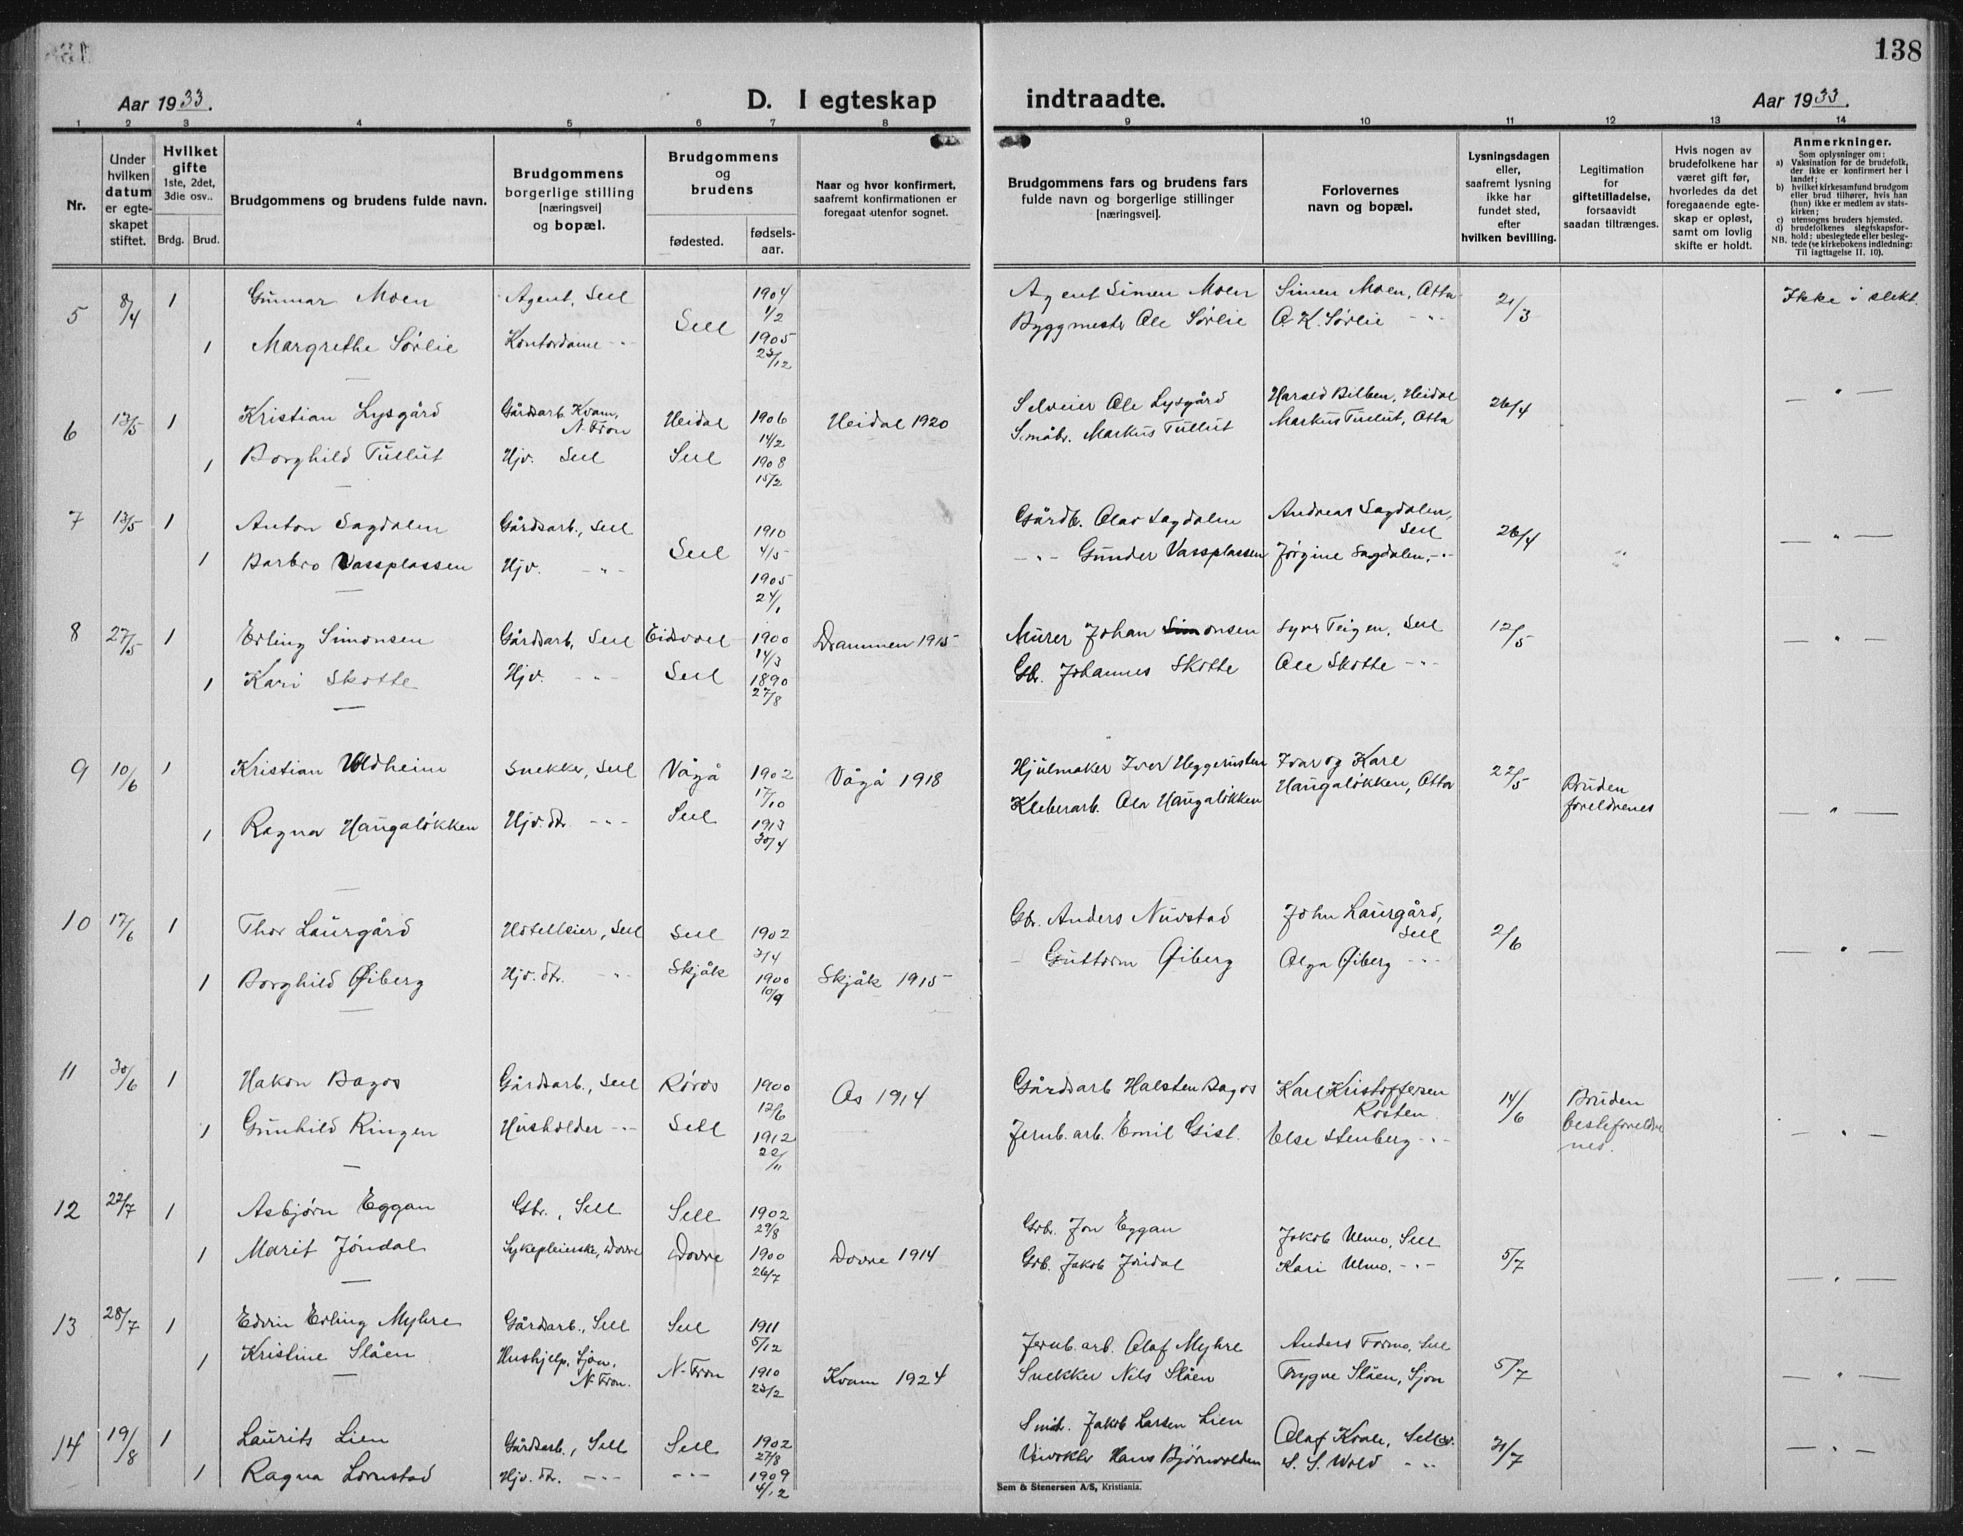 138
Aar 1933.
D. I egteskap
indtraadte.
Aar 1933.
1 2 3 4 5 6 7 8 9 10 11 12 13 14
Nr.
Under hvilken datum er egteskapet stiftet.
Hvilket gifte
1ste, 2det, 3die osv..
Brdg. Brud.
Brudgommens og brudens fulde navn.
Brudgommens borgerlige stilling [næringsvei] og bopæl.
Brudgommens og brudens
fødested.
fødselsaar.
Naar og hvor konfirmert, saafremt konfirmationen er foregaat utenfor sognet.
Brudgommens fars og brudens fars fulde navn og borgerlige stillinger [næringsvei].
Forlovernes navn og bopæl.
Lysningsdagen eller, saafremt lysning ikke har fundet sted, efter hvilken bevilling.
Legitimation for giftetilladelse, forsaavidt saadan tiltrænges.
Hvis nogen av brudefolkene har været gift før, hvorledes da det foregaaende egteskap er opløst, samt om lovlig skifte er holdt.
Anmerkninger.
Som oplysninger om:
a) Vaksination for de brudefolk, der ikke er konfirmert her i landet;
b) hvilket kirkesamfund brudgom eller brud tilhører, hvis han (hun) ikke er medlem av statskirken;
c) utensogns bruders hjemsted.
d) brudefolkenes slegtskapsforhold: ubeslegtede eller beslegtede (se kirkebokens indledning: Til iagttagelse II. 10).
NB.
5 8/4 1 Gunnar Moen Agent, Sell 1904 1/2 Agent Simen Moen Simen Moen, Otta 21/3 Ikke i slekt
1 Margrethe Sørlie Kontordame -"- Sell 1905 23/12 Byggmester Ole Sørlie O. K. Sørlie -"-
6 13/5 1 Kristian Lysgård Gårdsarb. Kvam, N. Fron Heidal 1906 14/2 Heidal 1920 Selveier Ole Lysgård Harald Bilben, Heidal 26/4 — " —
1 Borghild Tullut Hjv. Sell Sell 1908 15/2 Småbr. Markus Tullut Markus Tullut, Otta
7 13/5 1 Anton Sagdalen Gårdsarb., Sell 1910 4/5 Gårdb. Olav Sagdalen Andreas Sagdalen, Sell 26/4 " — " —
1 Barbro Vassplassen Hjv. -"- Sell 1905 24/1 -"- Gunder Vassplassen Jørgine Sagdalen, -"-
8 27/5 1 Erling Simonsen Gårdsarb., Sell Eidsvoll 1900 14/3 Drammen 1915 Murer Johan Simonsen Syver Teigen, Sell 12/5 — " —
1 Kari Skotte Hjv. -"- Sell 1890 27/8 Gbr. Johannes Skotte Ole Skotte -"-
9 10/6 1 Kristian Uldheim Snekker, Sell Vågå 1902 17/10 Vågå 1918 Hjulmaker Iver Heggerusten Ivar og Kari Haugaløkken, Otta 22/5 Bruden foreldrenes — " —
1 Ragna Haugaløkken Hjv. dtr. -"- Sell 1913 30/4 Kleberarb. Ola Haugaløkken
10 17/6 1 Thor Laurgård Hotelleier, Sell Sell 1902 3/4 Gbr. Anders Nustad John Laurgård, Sell 2/6 — " —
1 Borghild Øiberg Hjv. dtr. -"- Skjåk 1900 10/9 Skjåk 1915 - Guttorm Øiberg Olga Øiberg -"-
11 30/6 1 Hakon Bagos Gårdsarb., Sell Røros 1900 12/6 Os 1914 Gårdsarb Halsten Bagos Karl Kristoffersen Rosten 14/6 Bruden besteforeldrenes. — " —
1 Gunhild Ringen Husholder -"- Sell 1912 22/11 Jernb. arb. Emil Gist. Else Stenberg -"-
12 22/7 1 Asbjørn Eggan Gbr., Sell Sell 1902 29/8 Grb. Jon Eggan Jakob Ulmo, Sell 5/7 — " —
1 Marit Jøndal Sykepleierske, Dovre Dovre 1900 26/7 Dovre 1914 Grb. Jakob Jøndal Kari Ulmo. -"-
13 28/7 1 Edvin Erling Myhre Gårdsarb., Sell Sell 1911 5/12 Jernb. arb. Olaf Myhre Anders Formo, Sell 5/7 — " —
1 Kristine Slåen Hushjelp, Sjoa, N. Fron. N. Fron 1910 23/2 Kvam 1924 Snekker Nils Slåen Trygve Slåen, Sjoa
14 19/8 1 Laurits Lien Gårdsarb., Sell Sell 1902 27/8 Småbr. Jakob Larsen Lien Olaf Kvale, Sell 31/7 — " —
1 Ragna Lornstad Hjv. dtr. -"- -"- 1909 4/12 Hans Bjørnvolden S. S. Wold -"-
Sem & Stenersen A/S, Kristiania.